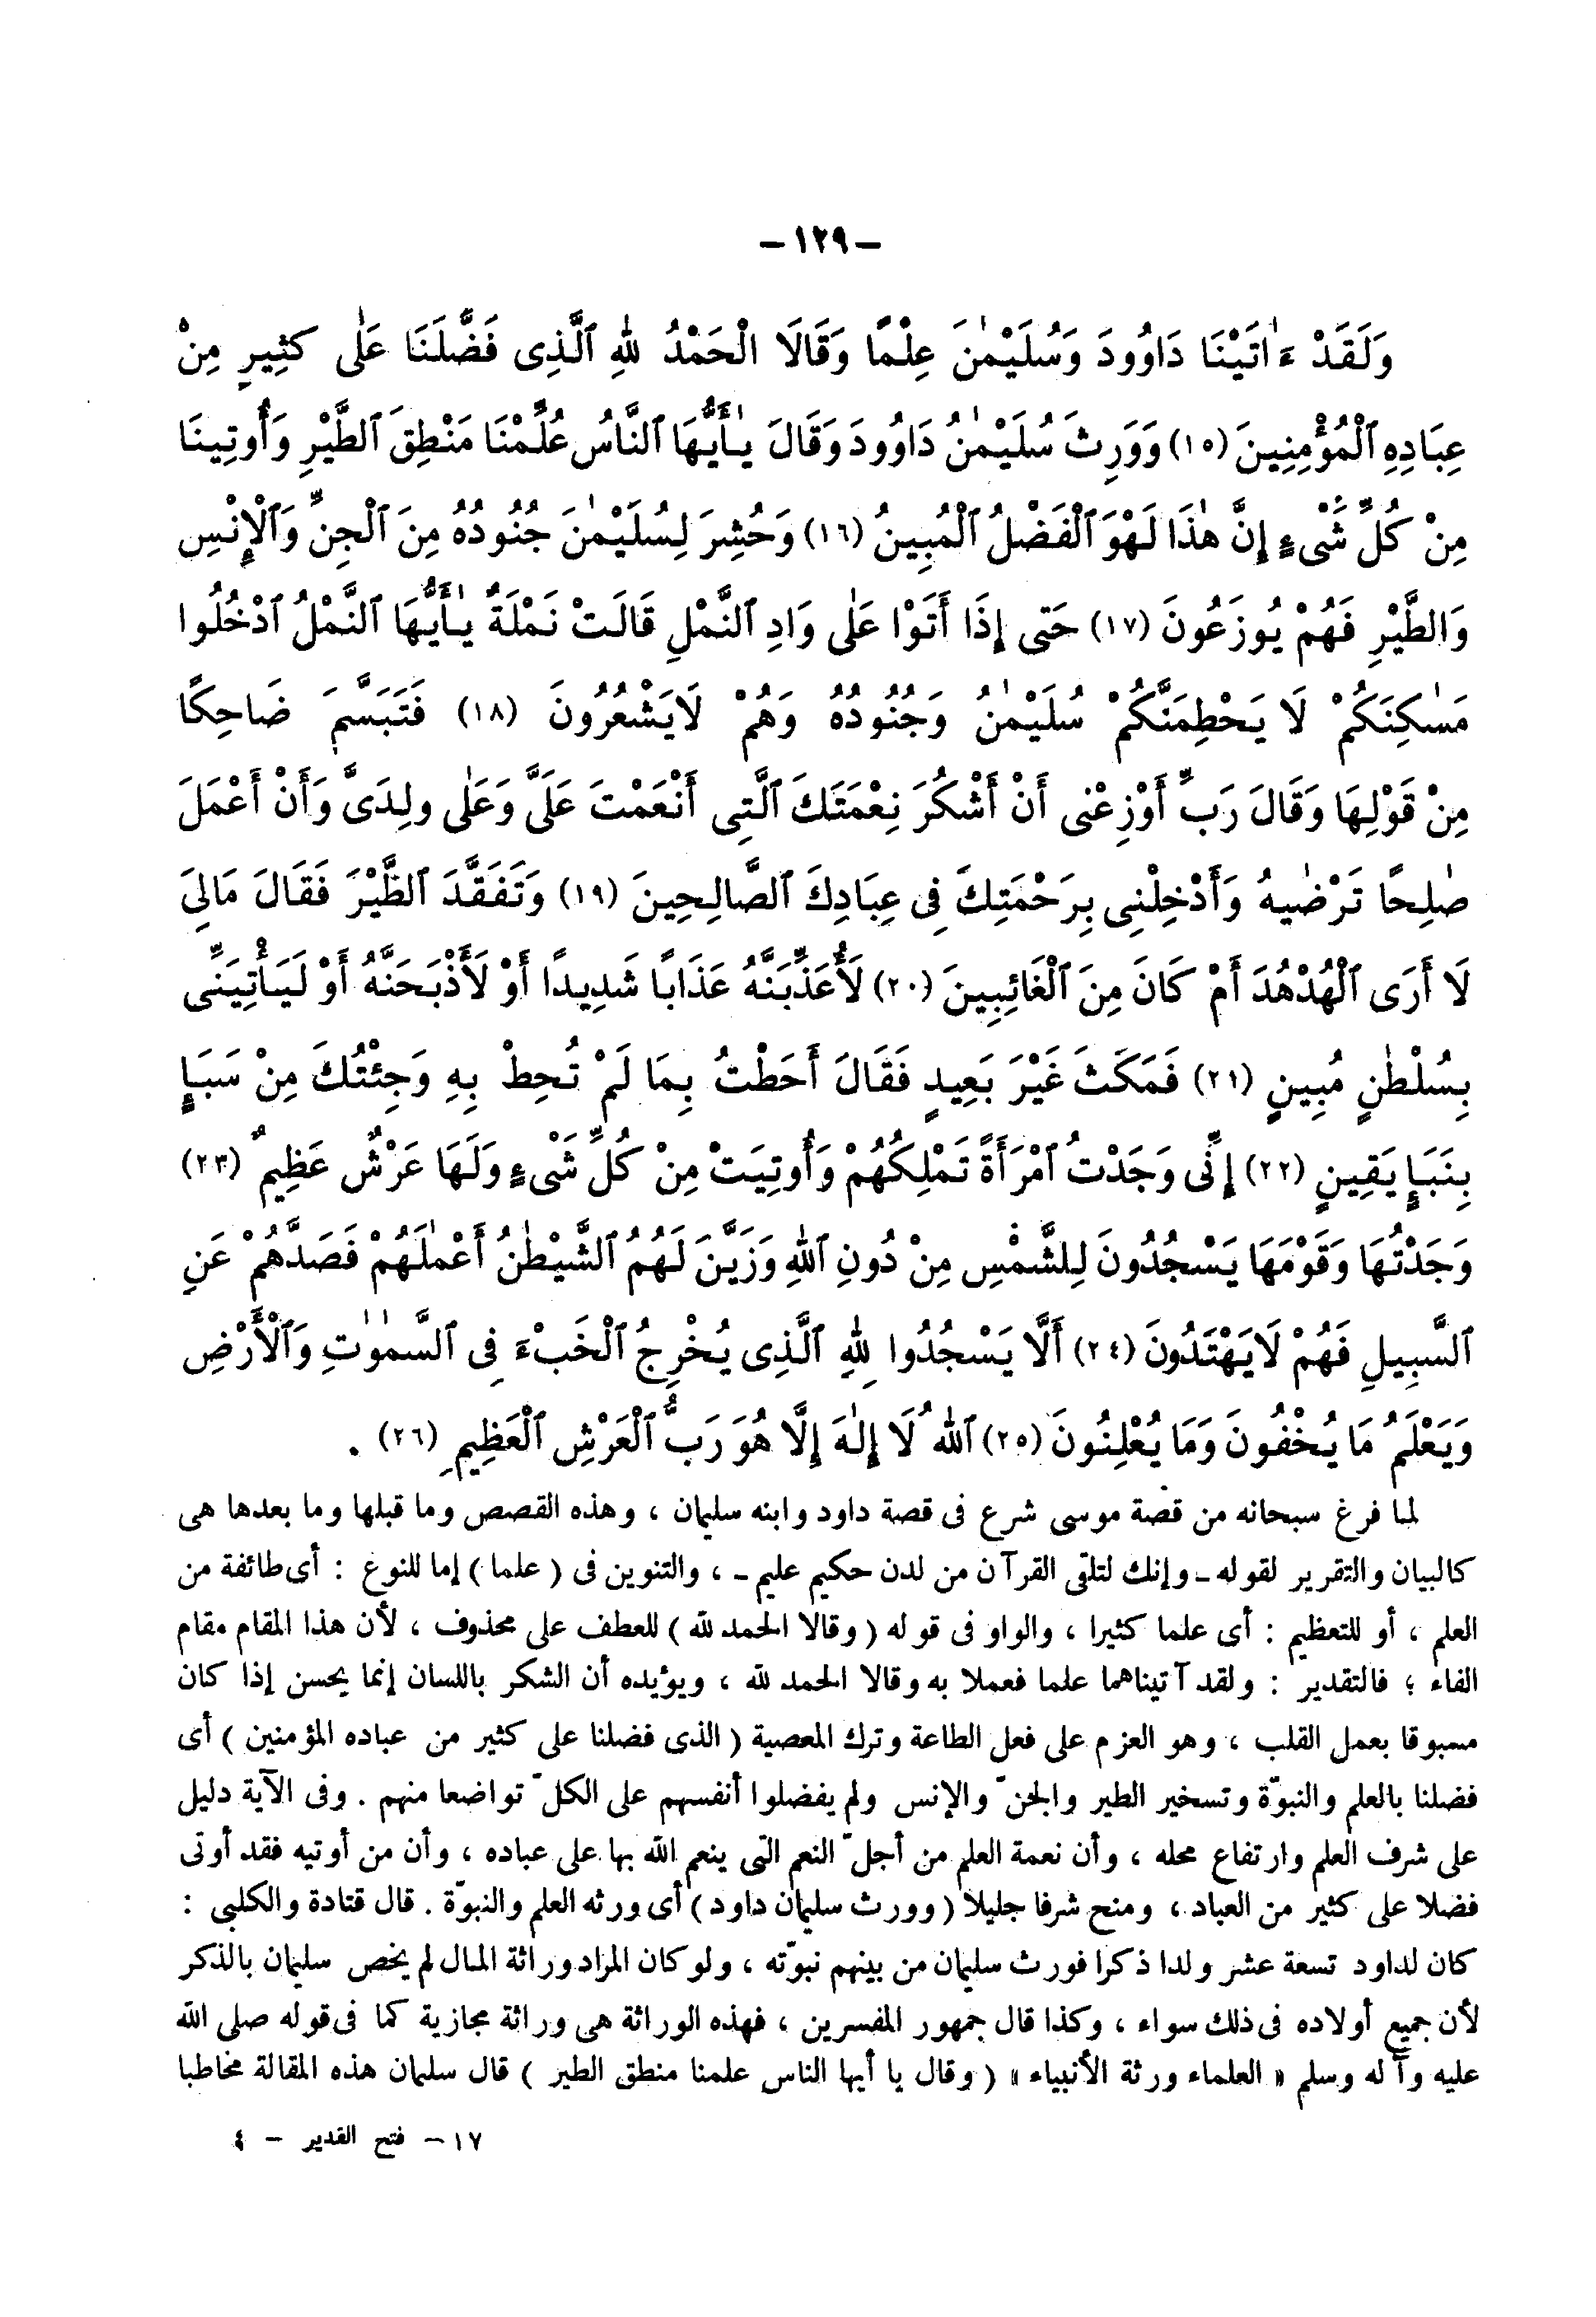 – ١٢٩ –
وَلَقَدْ ءَاتَيْنَا دَاوُودَ وَسُلَيْمٰنَ عِلْمًا وَقَالَا الْحَمْدُ لِلّٰهِ ٱلَّذِى فَضَّلَنَا عَلٰى كَثِيرٍ مِنْ
عِبَادِهِ ٱلْمُؤْمِنِينَ (١٥) وَوَرِثَ سُلَيْمٰنُ دَاوُودَ وَقَالَ يٰـأَيُّهَا ٱلنَّاسُ عُلِّمْنَا مَنْطِقَ ٱلطَّيْرِ وَأُوتِينَا
مِنْ كُلِّ شَىْءٍ إِنَّ هٰذَا لَهْوَ ٱلْفَضْلُ ٱلْمُبِينُ (١٦) وَحُشِرَ لِسُلَيْمٰنَ جُنُودُهُ مِنَ ٱلْجِنِّ وَٱلْإِنْسِ
وَالطَّيْرِ فَهُمْ يُوزَعُونَ (١٧) حَتى إِذَا أَتَوْا عَلٰى وَادِ ٱلنَّمْلِ قَالَتْ نَمْلَةٌ يٰـأَيُّهَا ٱلنَّمْلُ ٱدْخُلُوا
مَسٰكِنَكُمْ لَا يَحْطِمَنَّكُمْ سُلَيْمٰنُ وَجُنُودُهُ وَهُمْ لَايَشْعُرُونَ (١٨) فَتَبَسَّمَ ضَاحِكًا
مِنْ قَوْلِهَا وَقَالَ رَبِّ أَوْزِعْنى أَنْ أَشْكُرَ نِعْمَتَكَ ٱلَّتِى أَنْعَمْتَ عَلَىَّ وَعَلٰى ولِدَىَّ وَأَنْ أَعْمَلَ
صٰلِحًا تَرْضٰيهُ وَأَدْخِلْنِى بِرَحْمَتِكَ فِى عِبَادِكَ ٱلصَّالِحِينَ (١٩) وَتَفَقَّدَ ٱلطَّيْرَ فَقَالَ مَالِىَ
لَا أَرَى ٱلْهُدْهُدَ أَمْ كَانَ مِنَ ٱلْغَائِبِينَ (٢٠) لَأُعَذِّبَنَّهُ عَذَابًا شَدِيدًا أَوْ لَأَذْبَحَنَّهُ أَوْ لَيَـأْتِيَنِّى
بِسُلْطٰنٍ مُبِينٍ (٢١) فَمَكَثَ غَيْرَ بَعِيدٍ فَقَالَ أَحَطْتُ بِمَا لَمْ تُحِطْ بِهِ وَجِئْتُكَ مِنْ سَبَـإٍ
بِنَبَـإٍ يَقِينٍ (٢٢) إِنِّى وَجَدْتُ ٱمْرَأَةً تَمْلِكُهُمْ وَأُوتِيَتْ مِنْ كُلِّ شَىْءٍ وَلَهَا عَرْشٌ عَظِيمٌ (٢٣)
وَجَدْتُهَا وَقَوْمَهَا يَسْجُدُونَ لِلشَّمْسِ مِنْ دُونِ ٱللّٰهِ وَزَيَّنَ لَهُمُ ٱلشَّيْطٰنُ أَعْمٰلَهُمْ فَصَدَّهُمْ عَنِ
ٱلسَّبِيلِ فَهُمْ لَايَهْتَدُونَ (٢٤) أَلَّا يَسْجُدُوا لِلّٰهِ ٱلَّذِى يُخْرِجُ ٱلْخَبْءَ فِى ٱلسَّمٰوٰتِ وَٱلْأَرْضِ
وَيَعْلَمُ مَا يُخْفُونَ وَمَا يُعْلِنُونَ (٢٥) ٱللّٰهُ لَا إِلٰهَ إِلَّا هُوَ رَبُّ ٱلْعَرْشِ ٱلْعَظِيمِ (٢٦) .
لما فرغ سبحانه من قصة موسى شرع فى قصة داود وابنه سليمان ، وهذه القصص وما قبلها وما بعدها هى
كالبيان والتقرير لقوله ـ وإنك لتلقّى القرآن من لدن حكيم عليم ـ ، والتنوين فى ( علما ) إما للنوع : أى طائفة من
العلم ، أو للتعظيم : أى علما كثيرا ، والواو فى قوله ( وقالا الحمد لله ) للعطف على محذوف ، لأن هذا المقام مقام
الفاء ؛ فالتقدير : ولقد آتيناهما علما فعملا به وقالا الحمد لله ، ويؤيده أن الشكر باللسان إنما يحسن إذا كان
مسبوقا بعمل القلب ، وهو العزم على فعل الطاعة وترك المعصية ( الذى فضلنا على كثير من عباده المؤمنين ) أى
فضلنا بالعلم والنبوّة وتسخير الطير والجنّ والإنس ولم يفضلوا أنفسهم على الكلّ تواضعا منهم . وفى الآية دليل
على شرف العلم وارتفاع محله ، وأن نعمة العلم من أجلّ النعم التى ينعم الله بها على عباده ، وأن من أوتيه فقد أوتى
فضلا على كثير من العباد ، ومنح شرفا جليلا ( وورث سليمان داود ) أى ورثه العلم والنبوّة . قال قتادة والكلبى :
كان لداود تسعة عشر ولدا ذكرا فورث سليمان من بينهم نبوّته ، ولو كان المراد وراثة المال لم يخص سليمان بالذكر
لأن جميع أولاده فى ذلك سواء ، وكذا قال جمهور المفسرين ، فهذه الوراثة هى وراثة مجازية كما فى قوله صلى الله
عليه وآله وسلم « العلماء ورثة الأنبياء » ( وقال يا أيها الناس علمنا منطق الطير ) قال سليمان هذه المقالة مخاطبا
١٧ – فتح القدير – ٤